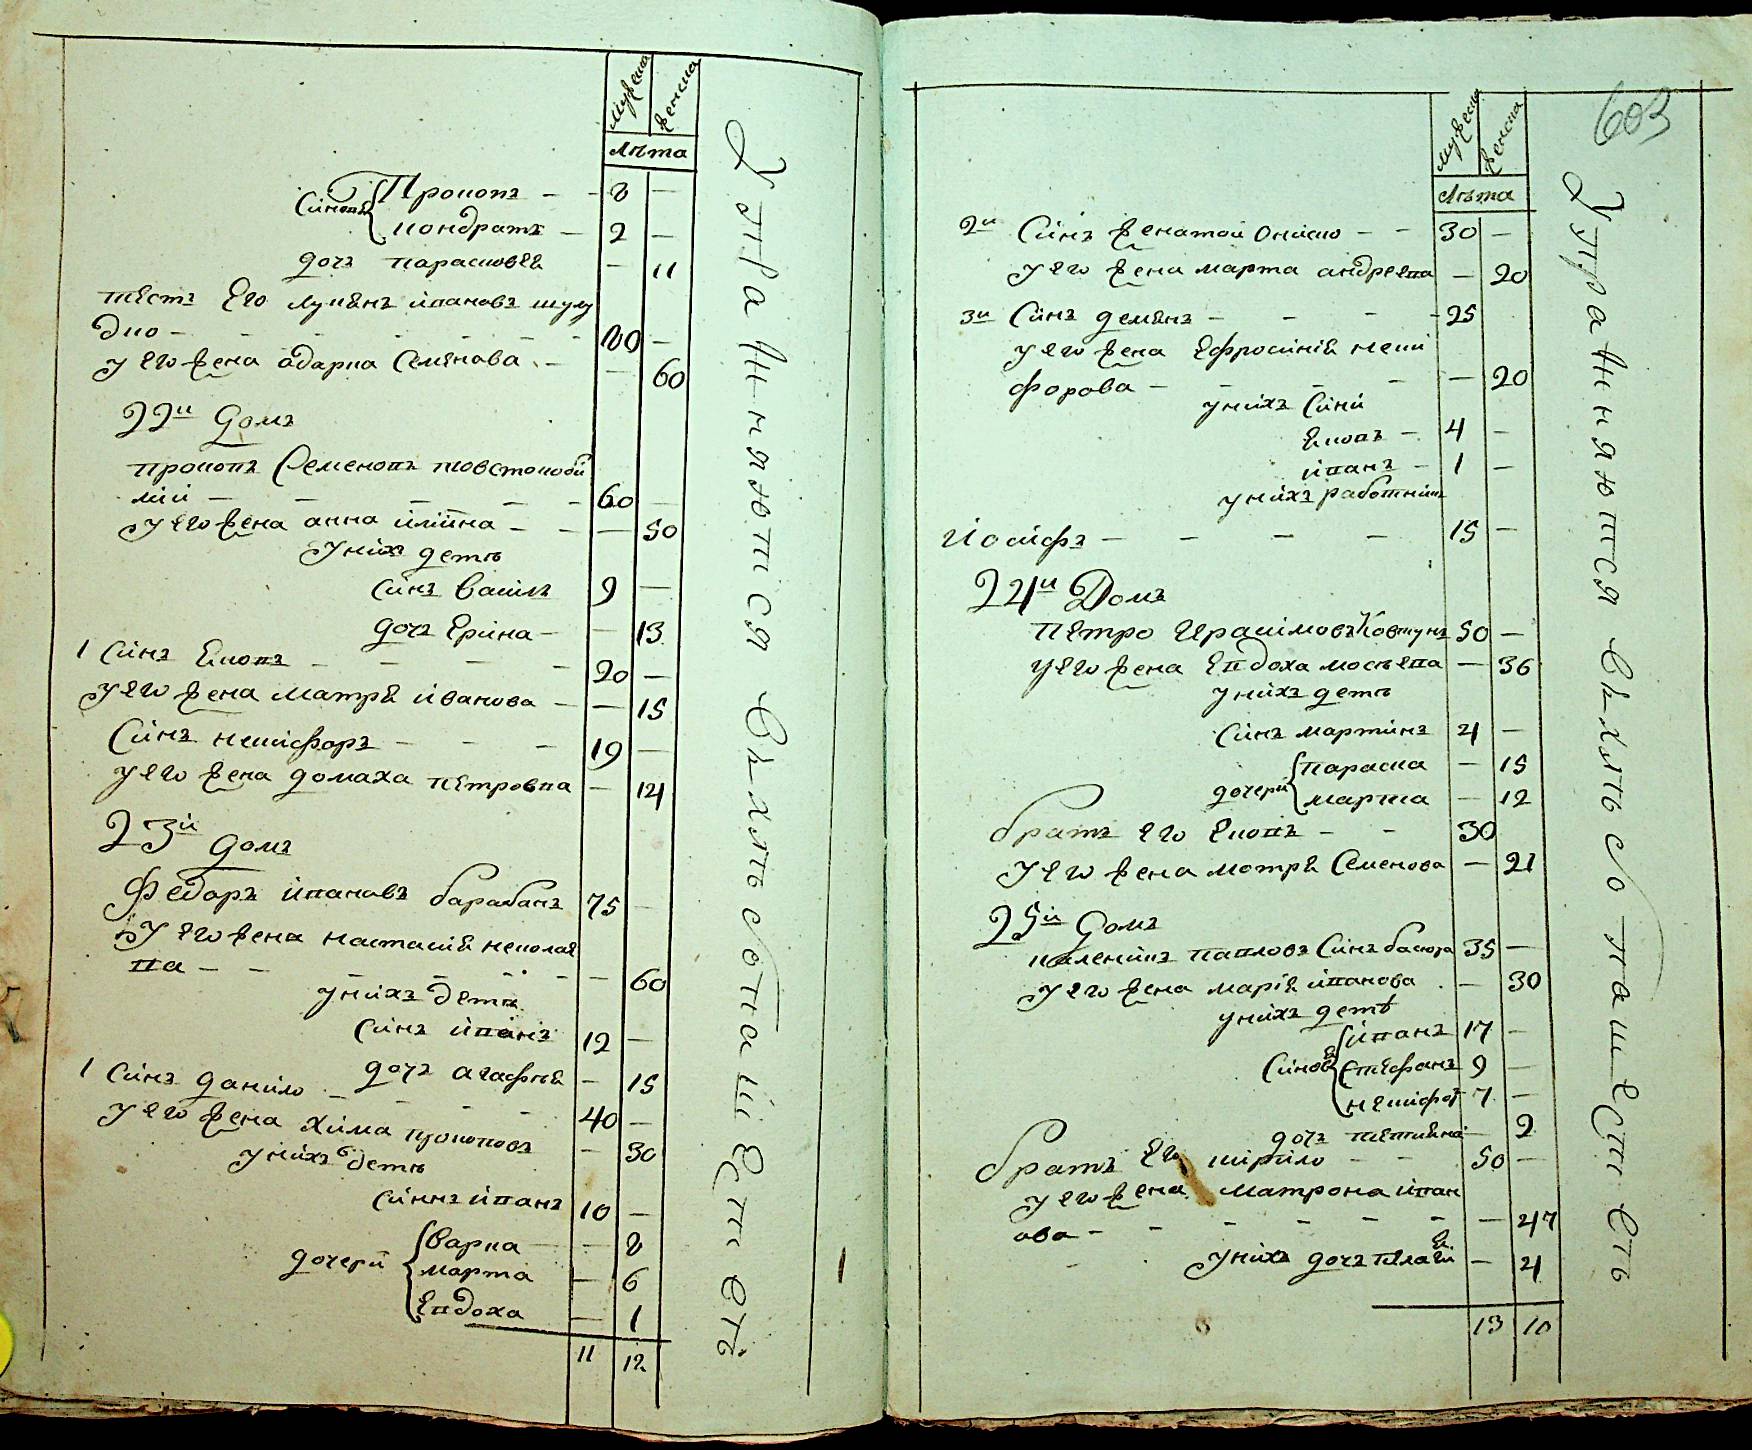 мужеска
женска
лѣта
Синовя Прокопъ - - 8 -
кондратъ - 2 -
дочъ парасковея - 11
тестъ Его лукянъ ивановъ шулу
дко - 80 -
у его жена одарка Семянова - - 60
22й домъ
прокопъ Семеновъ товстокобил
кий - 60 -
у его жена анна илиина - - 50
у нихъ дети
синъ василъ 9 -
дочъ Ерина - - 13
1 Синъ Якопъ - 20 -
у его жена матря иванова - - 15
Синъ никифоръ - 19 -
у его жена домаха петровна - 14
23й домъ
Федоръ ивановъ барабанъ 75 -
у его жена настасия николае
ва - - 60
у нихъ дети
синъ иванъ 12 -
дочъ агафия - 15
1 Синъ данило - 40 -
у его жена хима прокопова - 30
у нихъ дети
синъ иванъ 10 -
дочери варка - 8
марта - 6
Евдоха - 1
11 12
603
мужеска
женска
лѣта
2й Синъ женатой Ониско - - 30 -
у его жена марта андреева - 20
3й Синъ демянъ - 25
у его жена Ефросиния ники
форова - - 20
у нихъ Сини
Якопъ - 4 -
иванъ - 1 -
у нихъ работникъ
Иосифъ - 15 -
24й Домъ
петро Герасимовъ Ковтунъ 50 -
у его жена Евдоха мосеева - 36
у нихъ дети
Синъ мартинъ 4 -
дочери параска - 15
марта - 12
братъ его Якопъ - - 30
у его жена мотря Семенова - 21
25й домъ
каленикъ павловъ Синъ 35 -
у его жена мария иванова - 30
у нихъ детѣ
Синовя иванъ 17 -
Стефанъ 9 -
никифоръ 7 -
дочъ тетияна - 2
братъ Его кирило - - 50 -
у его жена матрона иван
ова - - 47
у нихъ дочъ пелагия - 4
13 10